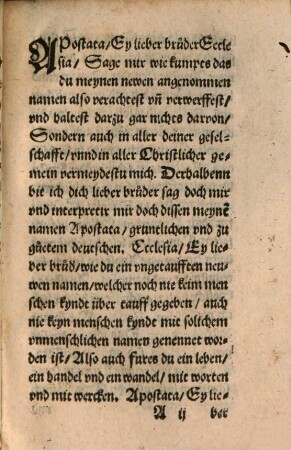 APostata/Ey lieber brůder Eccle
sia/ Sage mir wie kumpts das
du meynen newen angenommen
namen also verachtest vñ verwerffest/
vnd haltest darzu gar nichts darvon/
Sondern auch in aller deiner gesel-
schafft/vnnd in aller Christlicher ge-
mein vermeydestu mich. Derhalbenn
bit ich dich lieber brůder sag doch mir
vnd interpretir mir doch dissen meynẽ
namen Apostata/ gruntlichen vnd zu
gůetem deutschen. Ecclesia/ Ey lie-
ber brůd/wie du ein vngetaufften neu-
wen namen/welcher noch nie keim men
schen kyndt über tauff gegeben/ auch
nie keyn menschen kyndt mit solichem
vnmenschlichen namen genennet wor-
den ist/ Also auch fures du ein leben/
ein handel vnd ein wandel/ mit worten
vnd mit wercken. Apostata/ Ey lie-
A ij ber